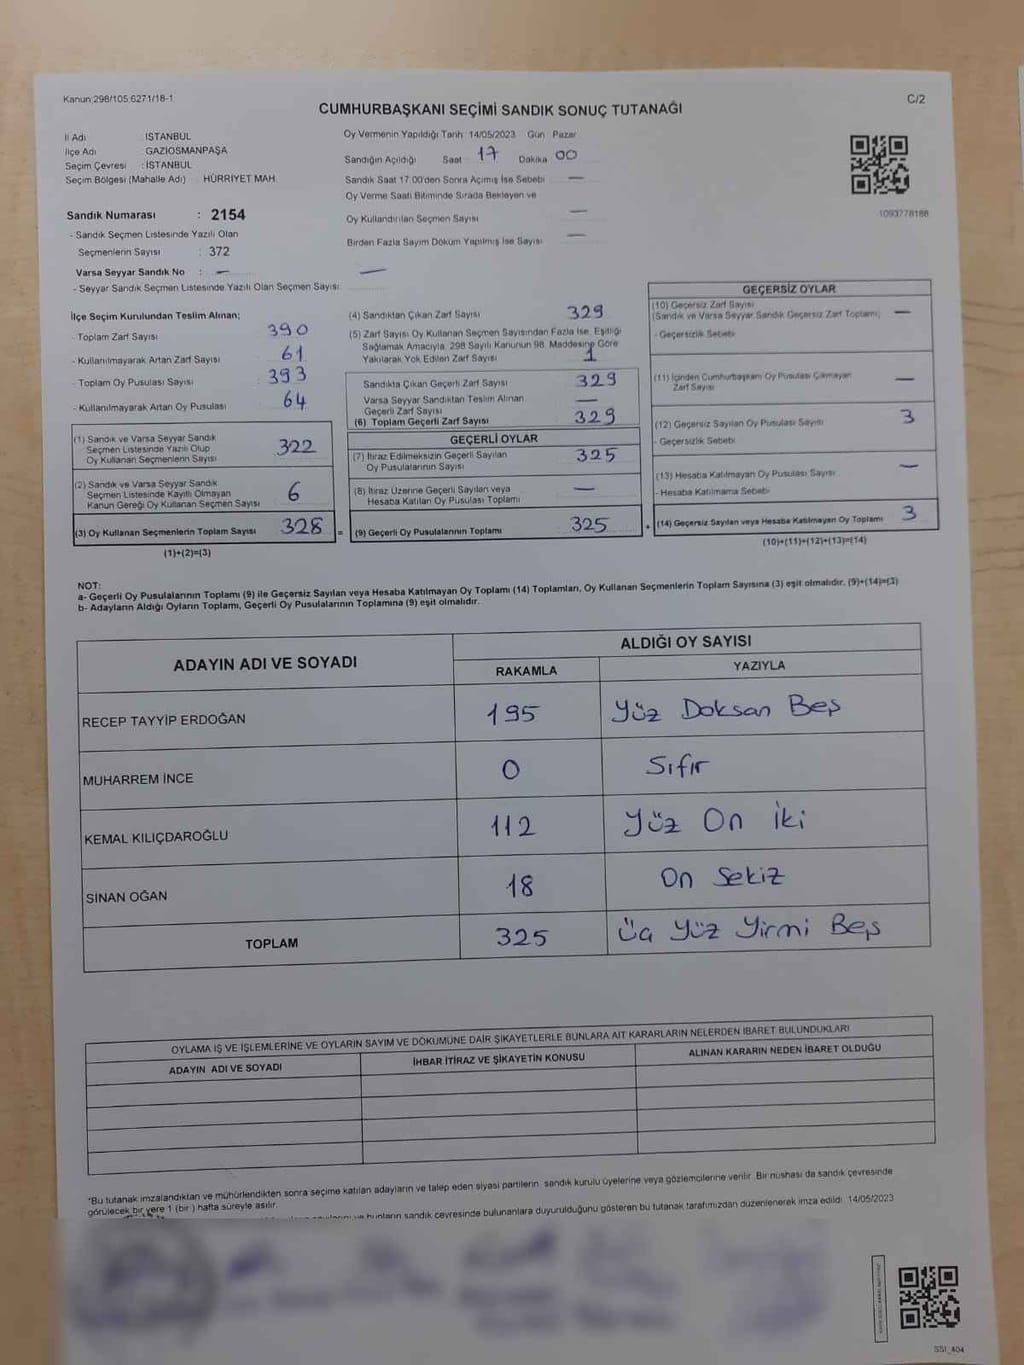 Kanun:298/105;6271/18-1
C/2
CUMHURBAŞKANI SEÇİMİ SANDIK SONUÇ TUTANAĞI
İl Adı : İSTANBUL
İlçe Adı : GAZİOSMANPAŞA
Seçim Çevresi : İSTANBUL
Seçim Bölgesi (Mahalle Adı) : HÜRRİYET MAH.
Sandık Numarası : 2154
- Sandık Seçmen Listesinde Yazılı Olan
Seçmenlerin Sayısı : 372
Varsa Seyyar Sandık No : —
- Seyyar Sandık Seçmen Listesinde Yazılı Olan Seçmen Sayısı: —
Oy Vermenin Yapıldığı Tarih 14/05/2023 Gün Pazar
Sandığın Açıldığı Saat 17 Dakika 00
Sandık Saat 17.00'den Sonra Açımış İse Sebebi —
Oy Verme Saati Bitiminde Sırada Bekleyen ve
Oy Kullandırılan Seçmen Sayısı —
Birden Fazla Sayım Döküm Yapılmış İse Sayısı —
1093778188
İlçe Seçim Kurulundan Teslim Alınan;
- Toplam Zarf Sayısı : 390
- Kullanılmayarak Artan Zarf Sayısı : 61
- Toplam Oy Pusulası Sayısı : 393
- Kullanılmayarak Artan Oy Pusulası : 64
(1) Sandık ve Varsa Seyyar Sandık
Seçmen Listesinde Yazılı Olup
Oy Kullanan Seçmenlerin Sayısı 322
(2) Sandık ve Varsa Seyyar Sandık
Seçmen Listesinde Kayıtlı Olmayan
Kanun Gereği Oy Kullanan Seçmen Sayısı 6
(3) Oy Kullanan Seçmenlerin Toplam Sayısı 328 =
(1)+(2)=(3)
(4) Sandıktan Çıkan Zarf Sayısı 329
(5) Zarf Sayısı Oy Kullanan Seçmen Sayısından Fazla İse, Eşitliği
Sağlamak Amacıyla, 298 Sayılı Kanunun 98. Maddesine Göre
Yakılarak Yok Edilen Zarf Sayısı 1
Sandıkta Çıkan Geçerli Zarf Sayısı 329
Varsa Seyyar Sandıktan Teslim Alınan
Geçerli Zarf Sayısı —
(6) Toplam Geçerli Zarf Sayısı 329
GEÇERLİ OYLAR
(7) İtiraz Edilmeksizin Geçerli Sayılan
Oy Pusulalarının Sayısı 325
(8) İtiraz Üzerine Geçerli Sayılan veya
Hesaba Katılan Oy Pusulası Toplamı —
(9) Geçerli Oy Pusulalarının Toplamı 325 +
GEÇERSİZ OYLAR
(10) Geçersiz Zarf Sayısı
(Sandık ve Varsa Seyyar Sandık Geçersiz Zarf Toplamı) —
- Geçersizlik Sebebi
(11) İçinden Cumhurbaşkanı Oy Pusulası Çıkmayan
Zarf Sayısı —
(12) Geçersiz Sayılan Oy Pusulası Sayısı 3
- Geçersizlik Sebebi
(13) Hesaba Katılmayan Oy Pusulası Sayısı —
- Hesaba Katılmama Sebebi
(14) Geçersiz Sayılan veya Hesaba Katılmayan Oy Toplamı 3
(10)+(11)+(12)+(13)=(14)
NOT:
a- Geçerli Oy Pusulalarının Toplamı (9) ile Geçersiz Sayılan veya Hesaba Katılmayan Oy Toplamı (14) Toplamları, Oy Kullanan Seçmenlerin Toplam Sayısına (3) eşit olmalıdır. (9)+(14)=(3)
b- Adayların Aldığı Oyların Toplamı, Geçerli Oy Pusulalarının Toplamına (9) eşit olmalıdır.
ADAYIN ADI VE SOYADI
ALDIĞI OY SAYISI
RAKAMLA YAZIYLA
RECEP TAYYİP ERDOĞAN 195 Yüz Doksan Beş
MUHARREM İNCE 0 Sıfır
KEMAL KILIÇDAROĞLU 112 Yüz On İki
SİNAN OĞAN 18 On Sekiz
TOPLAM 325 Üç Yüz Yirmi Beş
OYLAMA İŞ VE İŞLEMLERİNE VE OYLARIN SAYIM VE DÖKÜMÜNE DAİR ŞİKAYETLERLE BUNLARA AİT KARARLARIN NELERDEN İBARET BULUNDUKLARI
ADAYIN ADI VE SOYADI İHBAR İTİRAZ VE ŞİKAYETİN KONUSU ALINAN KARARIN NEDEN İBARET OLDUĞU
*Bu tutanak imzalandıktan ve mühürlendikten sonra seçime katılan adayların ve talep eden siyasi partilerin sandık kurulu üyelerine veya gözlemcilerine verilir. Bir nüshası da sandık çevresinde
görülecek bir yere 1 (bir ) hafta süreyle asılır.
bunların sandık çevresinde bulunanlara duyurulduğunu gösteren bu tutanak tarafımızdan düzenlenerek imza edildi. 14/05/2023
SSI_404